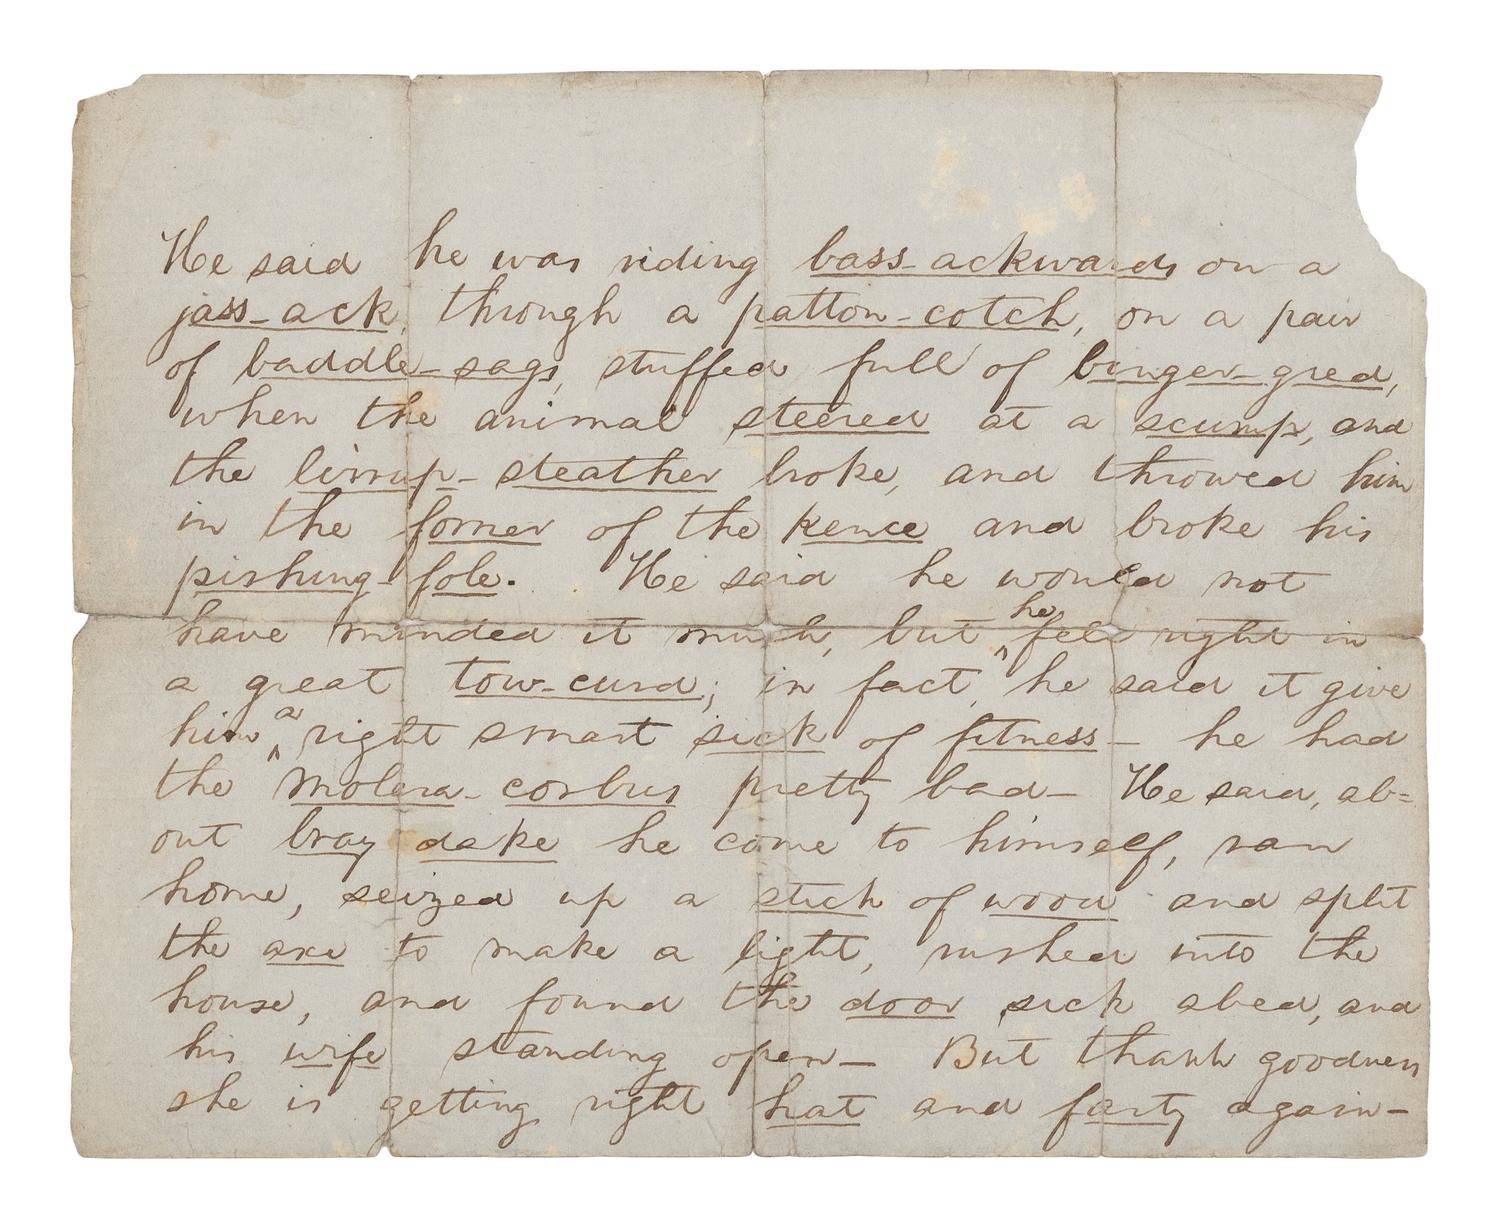 He said he was riding bass-ackwards on a
jass-ack, through a patton-cotch, on a pair
of baddle-sags, stuffed full of binger-gred,
when the animal steered at a scump, and
the lirrup-steather broke, and throwed him
in the forner of the kence and broke his
pishing-fole. He said he would not
have minded it much, but he fell right in
a great tow-curd; in fact, he said it give
him a right smart sick of fitness— he had
the molera-corbus pretty bad— He said, ab=
out bray dake he come to himself, ran
home, seized up a stick of wood and split
the axe to make a light, rushed into the
house, and found the door sick abed, and
his wife standing open— But thank goodness
she is getting right hat and farty again—